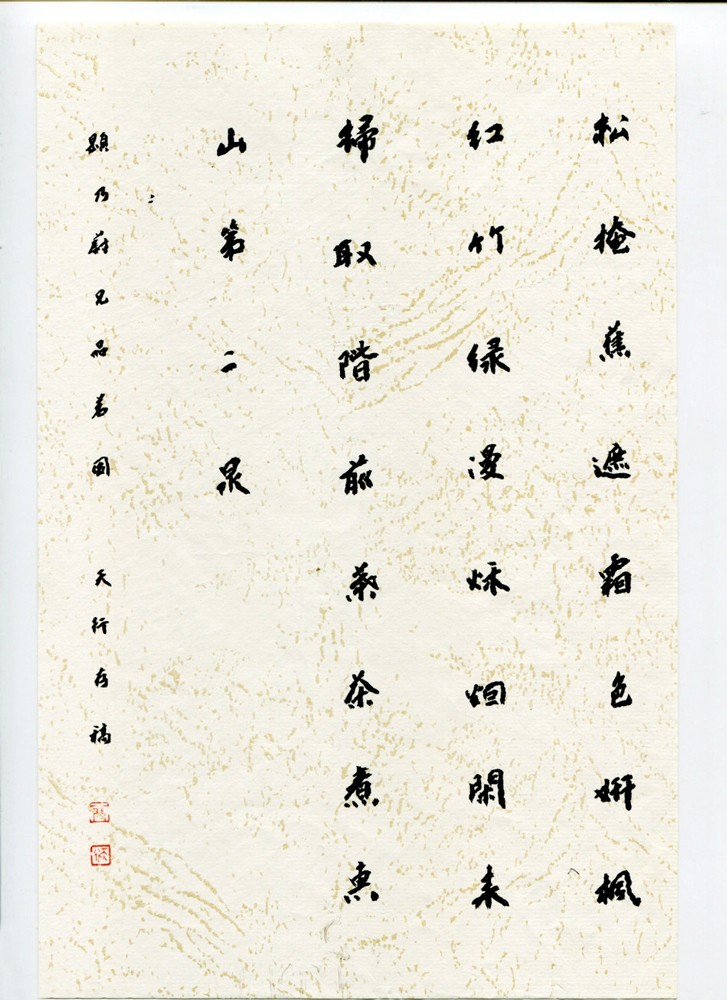 松掩蕉遮霜色妍楓
紅竹绿漫烁烟閑来
掃取階前葉茶煮惠
山第二泉
題乃蔚兄品茗圖 天行存稿